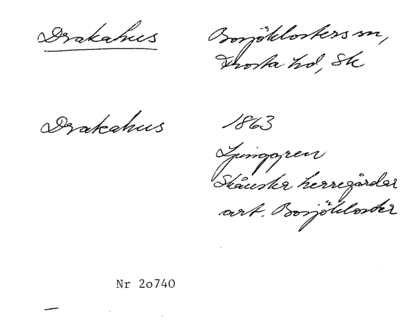 Drakahus
Bosjöklosters sn,
Frosta hd, Sk
Drakahus
1863
Ljunggren
Skånska herregårdar
art. Bosjökloster
Nr 20740